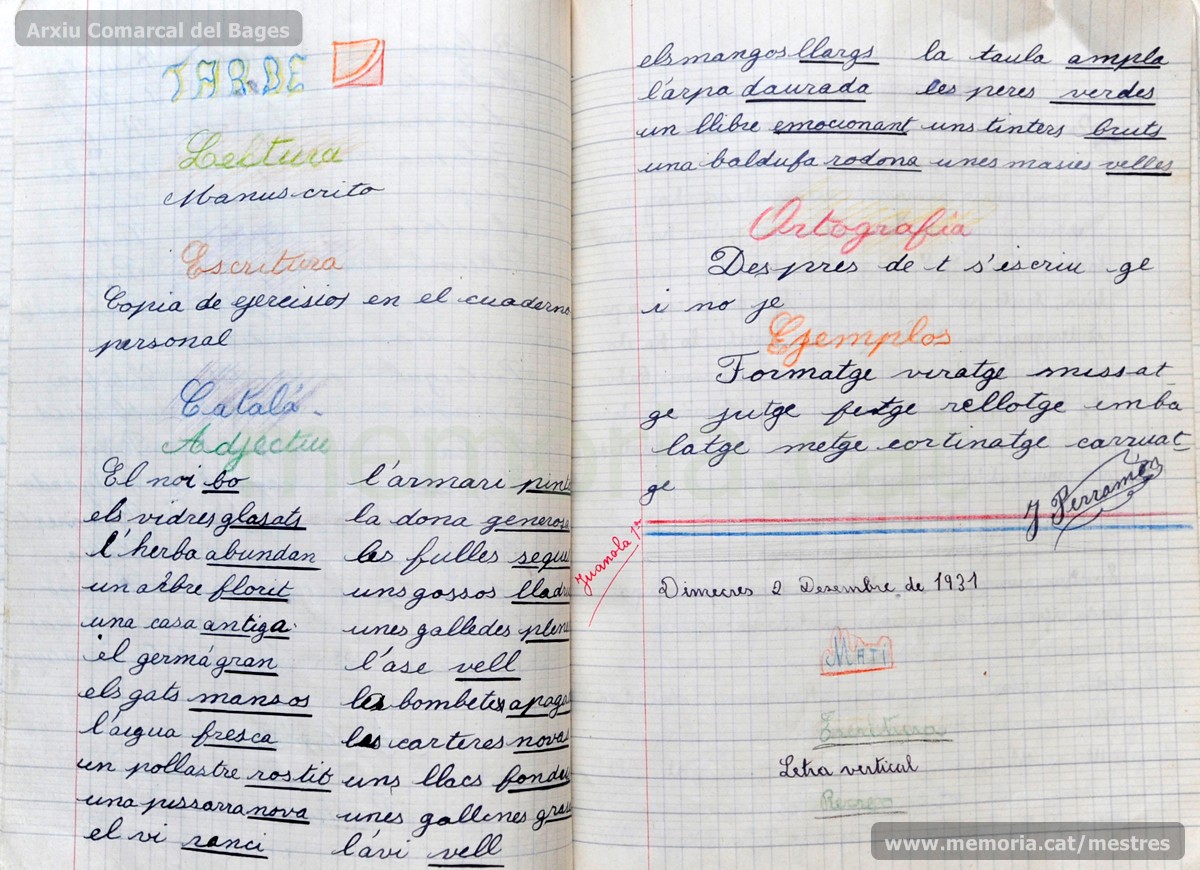 Arxiu Comarcal del Bages
TARDE
Lectura
Manuscrito
Escritura
Copia de ejercisios en el cuaderno
personal
Català
Adjectiu
El noi bo
els vidres glasats
l'herba abundan
un arbre florit
una casa antiga
el germá gran
els gats mansos
l'aigua fresca
un pollastre rostit
una pissarra nova
el vi ranci
l'armari pin
la dona generosa
les fulles segue
uns gossos lladr
unes galledes plene
l'ase vell
les bombetes apaga
les carteres novas
uns llacs fondu
unes gallines gras
l'avi vell
els mangos llargs la taula ampla
l'arpa daurada les peres verdes
un llibre emocionant uns tinters bruts
una baldufa rodona unes masies velles
Ortografía
Despres de t s'escriu ge
i no je
Ejemplos
Formatge viratge missat
ge jutge fetge rellotge emba
latge metge cortinatge carruat
ge
J Perramón
Juanola 1r
Dimecres 2 Desembre de 1931
MATI
Escritura
Letra vertical
Recreo
www.memoria.cat/mestres